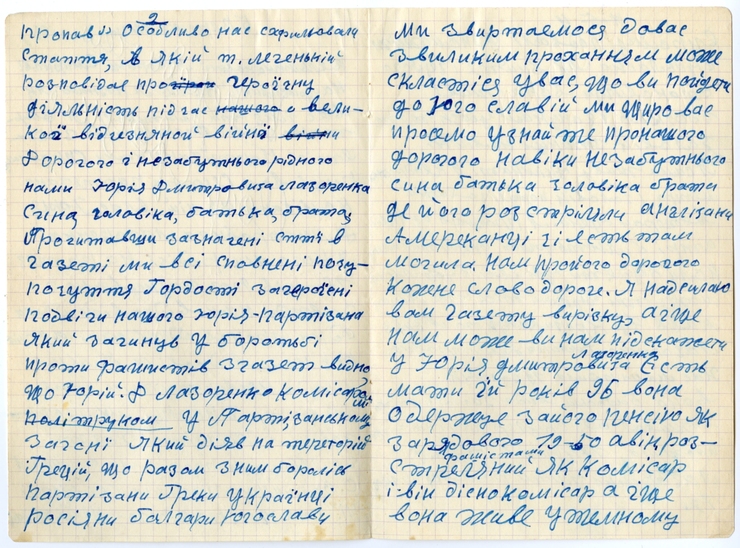 2
пропав" особливо нас схвилювали
стаття, в якій т. Легенький
розповідає про героїчну
діяльність підчас нашого о вели-
кої відчезняной війні війни
дорогого і незабутнього рідного
нами Юрія Дмитровича Лазоренка
Сина, чоловіка, батька, брата,
Прочитавши зазначені статті в
газеті ми всі сповнені почу-
почуття Гордості загероїчні
подвіги нашого Юрія-партізана
який загинув у боротьбі
проти фашистів з газет видно
що Юрій. Д Лазоренко комісаром
політруком у Партізанському
Загоні який діяв на територій
Греції, що разом зним боролісь
партізани Греки українці
росіяни болгари югославы
ми звиртаємося довас
звиликим проханням може
скластіся увас, що ви поїдети
до Югославій ми щиро вас
просемо узнайте пронашого
дорогого навіки незабутнього
сина батька чоловіка брата
де його розстріляли англічани
Американці чі єсть там
могила. Нам пройого дорогого
кожне слово дороге. Я надсилаю
вам газету вирізку, а ще
нам може ви нам підскажети
Лазоренка
у Юрія Дмитровича Єсть
мати їй років 96 вона
одержує зайого пенсію як
зарядового 19-50 а він роз-
фашістами
стреляний як комісар
і він діснокомісар а іще
вона живе у темному